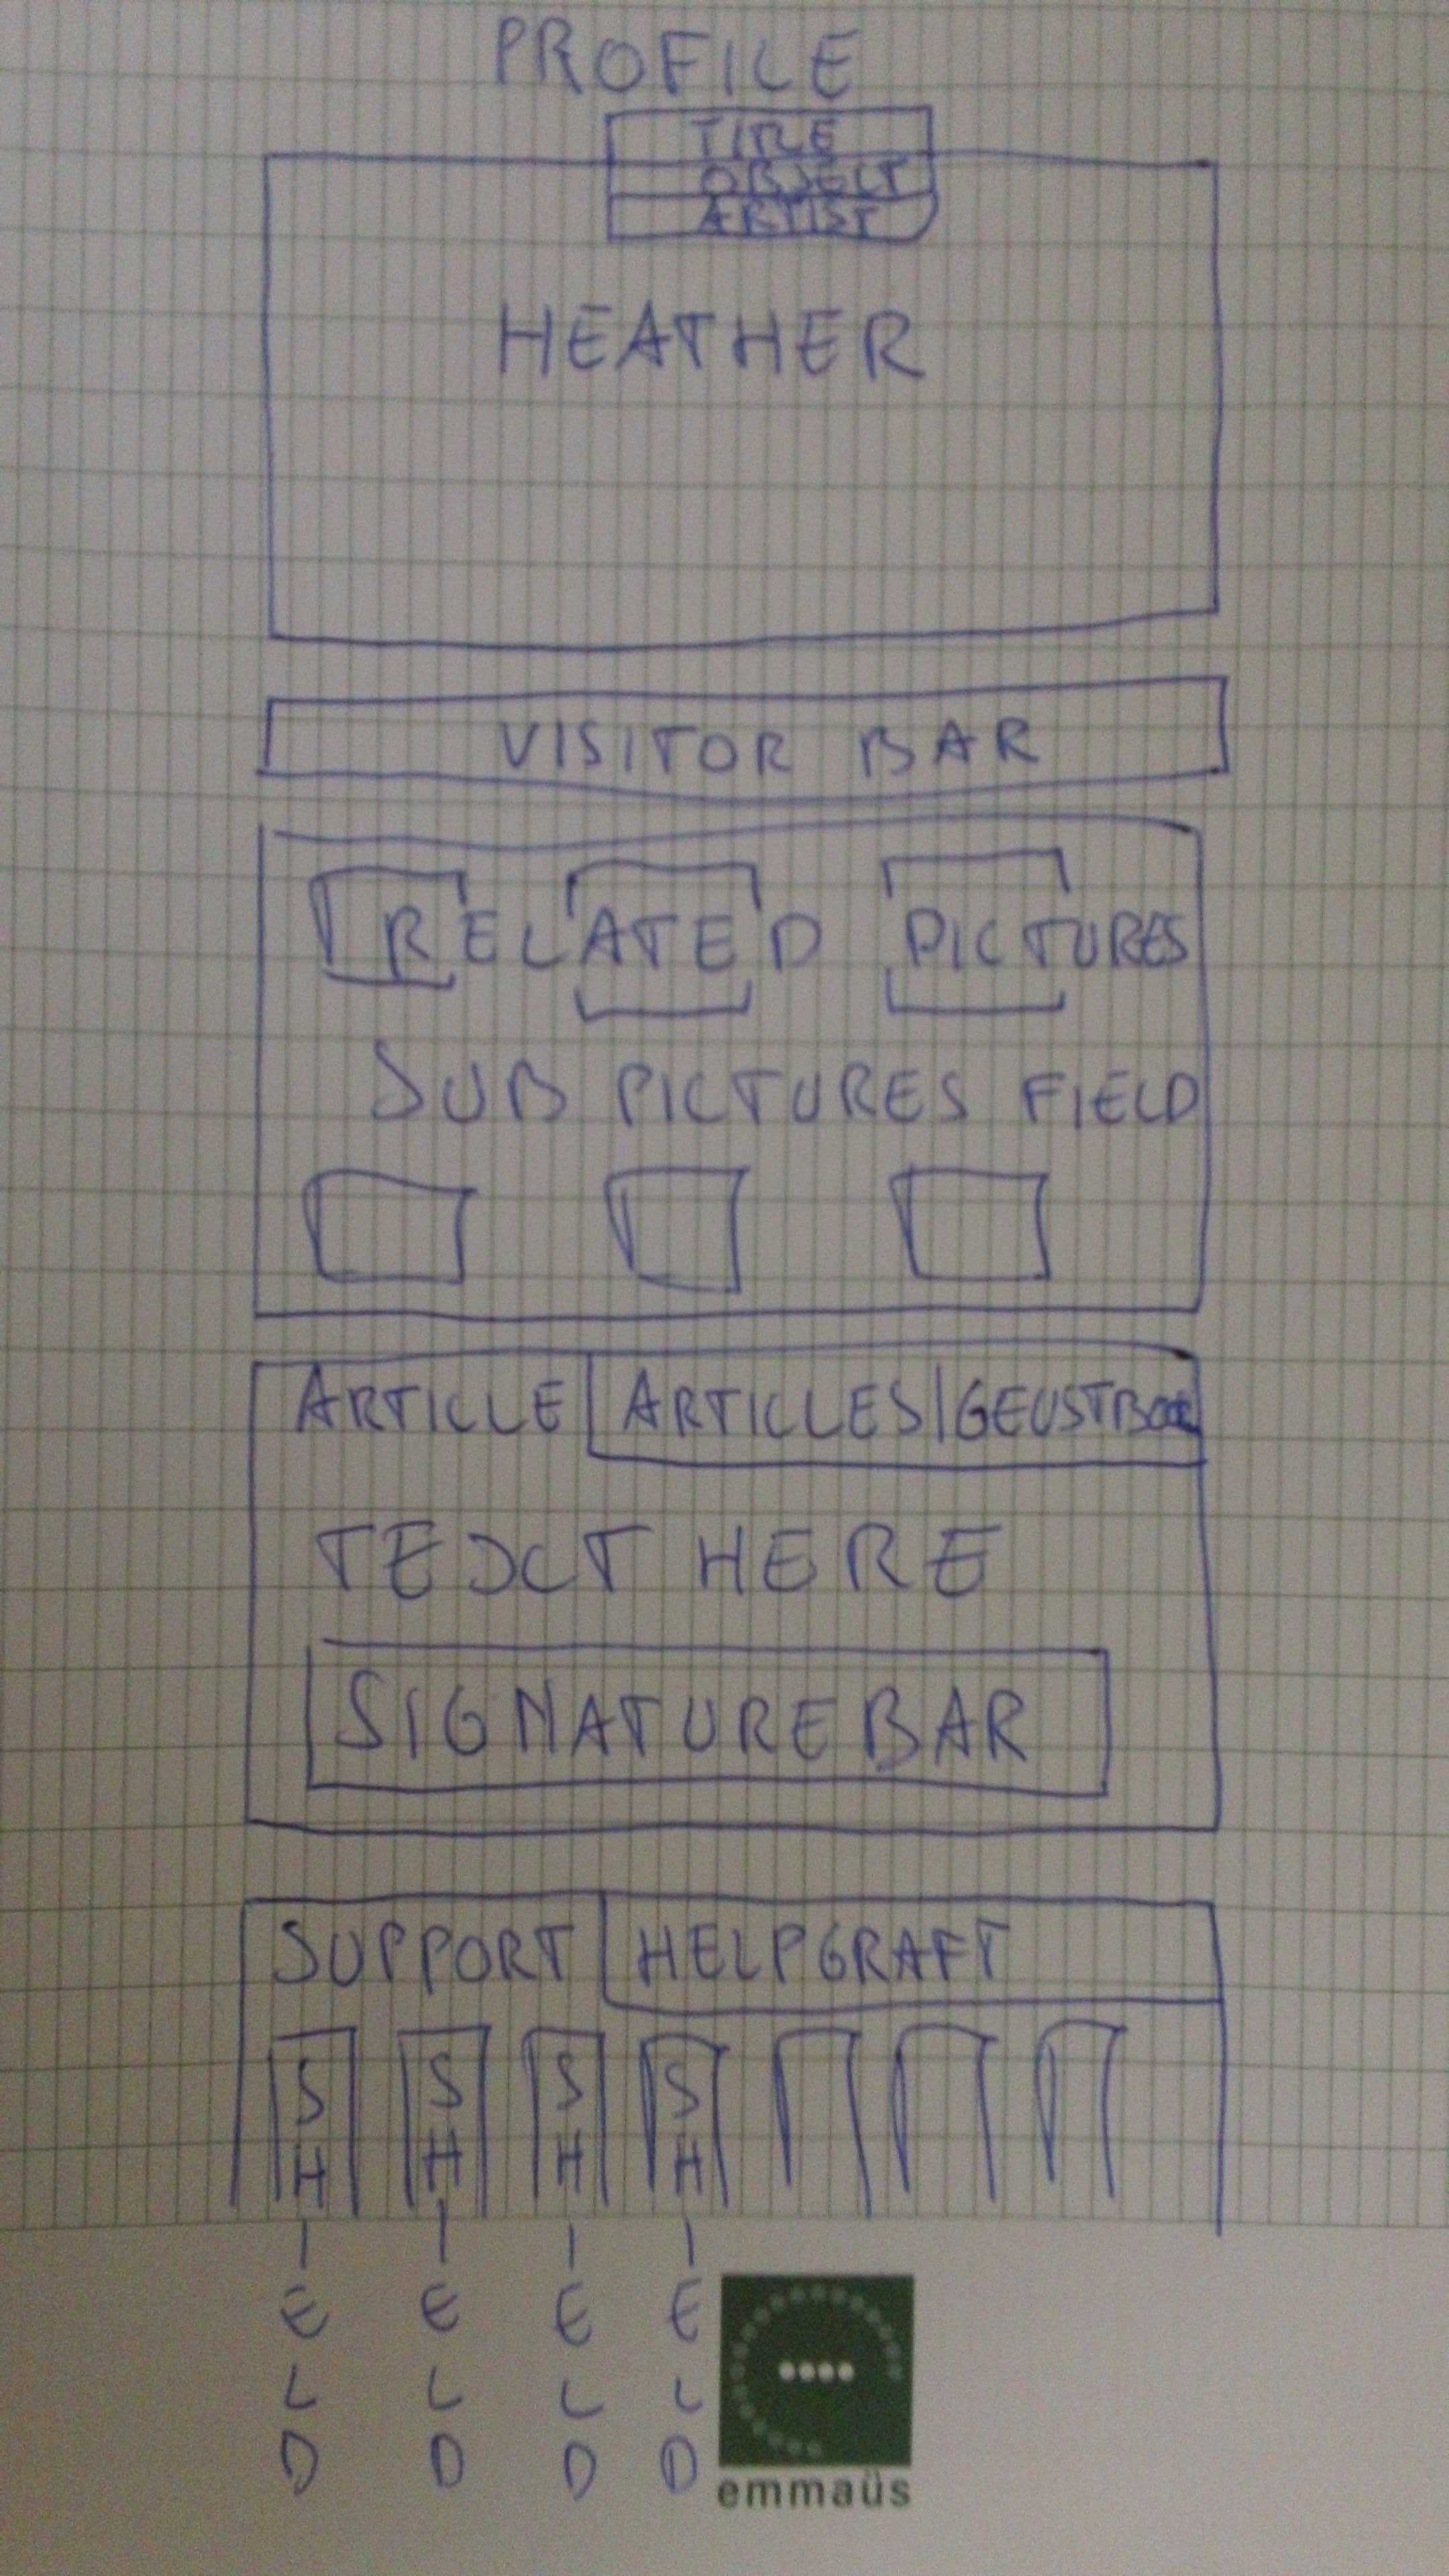 PROFILE
TITLE
OBJECT
ARTIST
HEATHER
VISITOR BAR
RELATED PICTURES
SUB PICTURES FIELD
ARTICLE ARTICLES|GEUSTBOOK
TEXT HERE
SIGNATURE BAR
SUPPORT HELPGRAFT
S S S S
H H H H
I I I I
E E E E
L L L L
D D D D
emmaüs